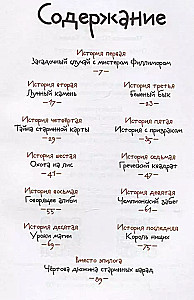 Содержание
История первая
Загадочный случай с мистером Филлимором
—7—
История вторая
Лунный камень
—17—
История третья
Бешеный бык
—23—
История четвёртая
Тайна старинной карты
—29—
История пятая
История с призраком
—35—
История шестая
Охота на лис
—41—
История седьмая
Греческий квадрат
—47—
История восьмая
Говорящее алиби
—55—
История девятая
Чемпионский забег
—61—
История десятая
Уроки магии
—69—
История последняя
Король нищих
—75—
Вместо эпилога
Чёртова дюжина старинных шарад
—89—